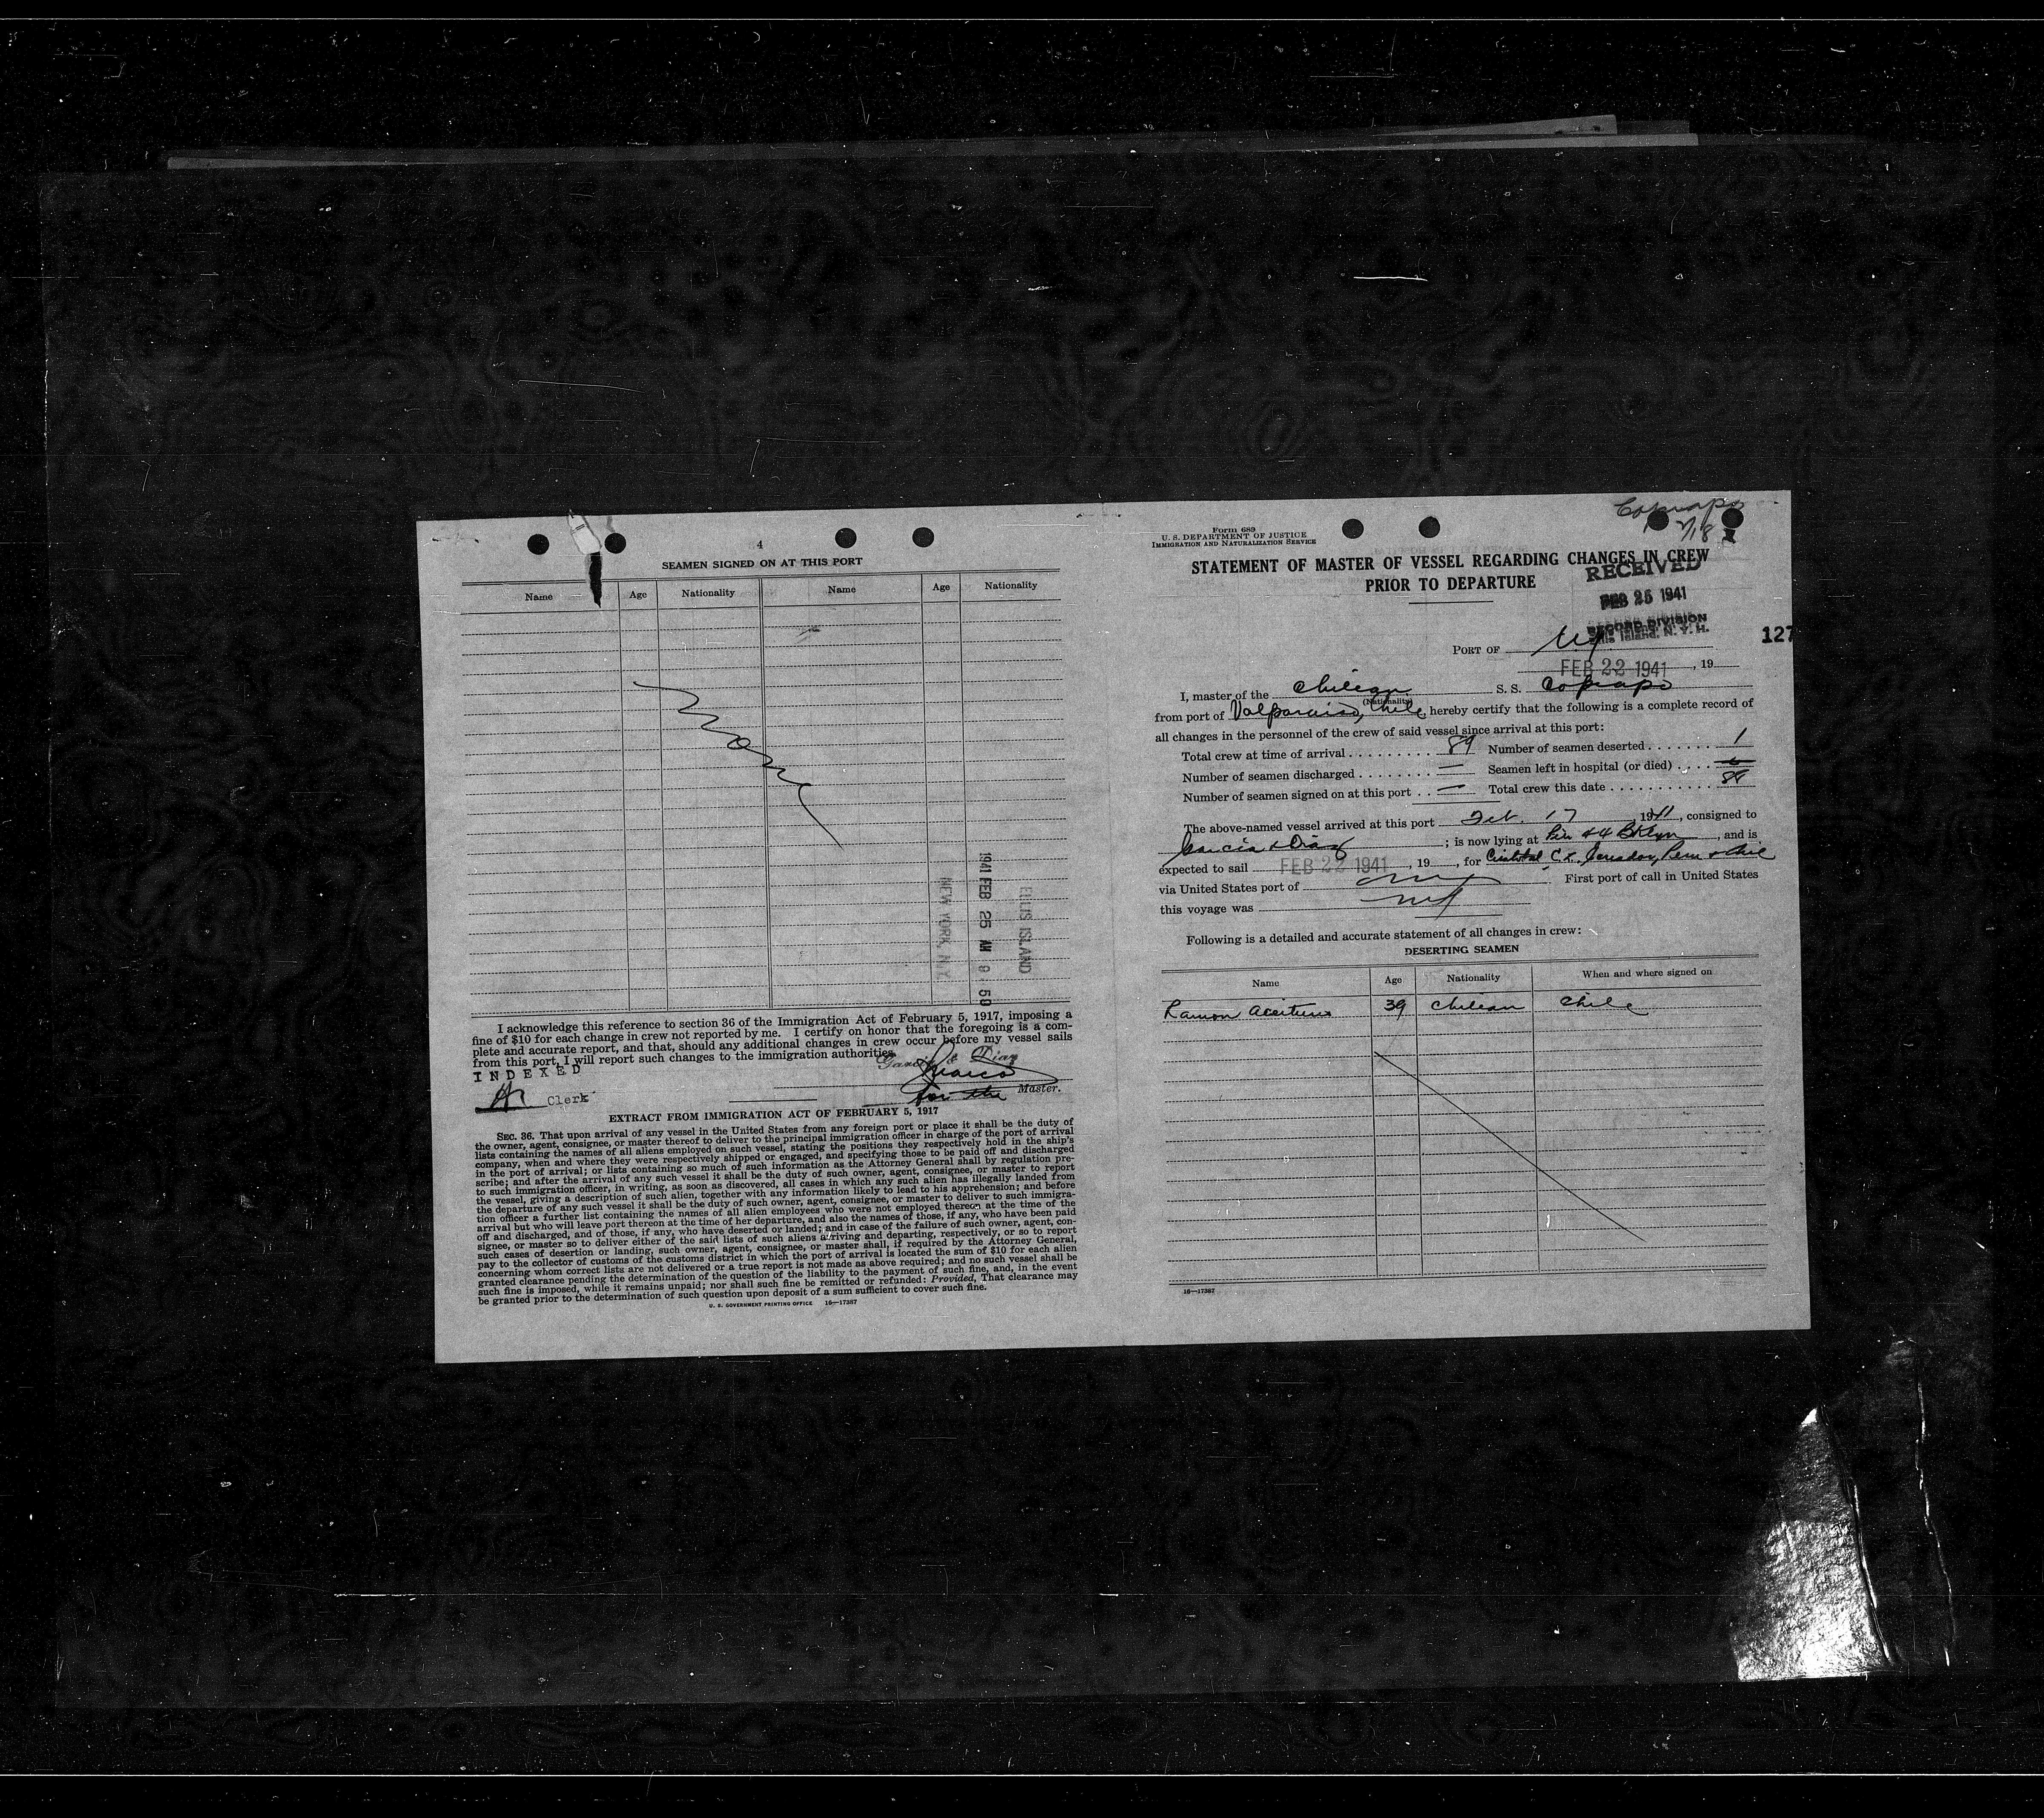 4
SEAMEN SIGNED ON AT THIS PORT
Name Age Nationality Name Age Nationality
None
1941 FEB 25 AM 9 50
ELLIS ISLAND
NEW YORK, N.Y.
I acknowledge this reference to section 36 of the Immigration Act of February 5, 1917, imposing a
fine of $10 for each change in crew not reported by me. I certify on honor that the foregoing is a com-
plete and accurate report, and that, should any additional changes in crew occur before my vessel sails
from this port, I will report such changes to the immigration authorities.
INDEXED
Garcia & Diaz
Clerk
for the Master.
EXTRACT FROM IMMIGRATION ACT OF FEBRUARY 5, 1917
SEC. 36. That upon arrival of any vessel in the United States from any foreign port or place it shall be the duty of
the owner, agent, consignee, or master thereof to deliver to the principal immigration officer in charge of the port of arrival
lists containing the names of all aliens employed on such vessel, stating the positions they respectively hold in the ship's
company, when and where they were respectively shipped or engaged, and specifying those to be paid off and discharged
in the port of arrival; or lists containing so much of such information as the Attorney General shall by regulation pre-
scribe; and after the arrival of any such vessel it shall be the duty of such owner, agent, consignee, or master to report
to such immigration officer, in writing, as soon as discovered, all cases in which any such alien has illegally landed from
the vessel, giving a description of such alien, together with any information likely to lead to his apprehension; and before
the departure of any such vessel it shall be the duty of such owner, agent, consignee, or master to deliver to such immigra-
tion officer a further list containing the names of all alien employees who were not employed thereon at the time of the
arrival but who will leave port thereon at the time of her departure, and also the names of those, if any, who have been paid
off and discharged, and of those, if any, who have deserted or landed; and in case of the failure of such owner, agent, con-
signee, or master so to deliver either of the said lists of such aliens arriving and departing, respectively, or so to report
such cases of desertion or landing, such owner, agent, consignee, or master shall, if required by the Attorney General,
pay to the collector of customs of the customs district in which the port of arrival is located the sum of $10 for each alien
concerning whom correct lists are not delivered or a true report is not made as above required; and no such vessel shall be
granted clearance pending the determination of the question of the liability to the payment of such fine, and, in the event
such fine is imposed, while it remains unpaid; nor shall such fine be remitted or refunded: Provided, That clearance may
be granted prior to the determination of such question upon deposit of a sum sufficient to cover such fine.
U. S. GOVERNMENT PRINTING OFFICE 16—17387
Copiapo
2/18
Form 689
U. S. DEPARTMENT OF JUSTICE
IMMIGRATION AND NATURALIZATION SERVICE
STATEMENT OF MASTER OF VESSEL REGARDING CHANGES IN CREW
PRIOR TO DEPARTURE
RECEIVED
FEB 25 1941
RECORD DIVISION
Ellis Island, N. Y. H.
127
PORT OF NY
FEB 22 1941, 19
I, master of the Chilean S. S. Copiapo
(Nationality)
from port of Valparaiso, Chile, hereby certify that the following is a complete record of
all changes in the personnel of the crew of said vessel since arrival at this port:
Total crew at time of arrival 89 Number of seamen deserted 1
Number of seamen discharged — Seamen left in hospital (or died)
Number of seamen signed on at this port — Total crew this date 88
The above-named vessel arrived at this port Feb. 17, 1941, consigned to
Garcia & Diaz; is now lying at Pier 44 Bklyn, and is
expected to sail FEB 22 1941, 19, for Cristobal C.Z. Ecuador, Peru & Chile
via United States port of First port of call in United States
this voyage was NY
Following is a detailed and accurate statement of all changes in crew:
DESERTING SEAMEN
Name Age Nationality When and where signed on
Ramon Aceituno 39 Chilean Chile
16—17387